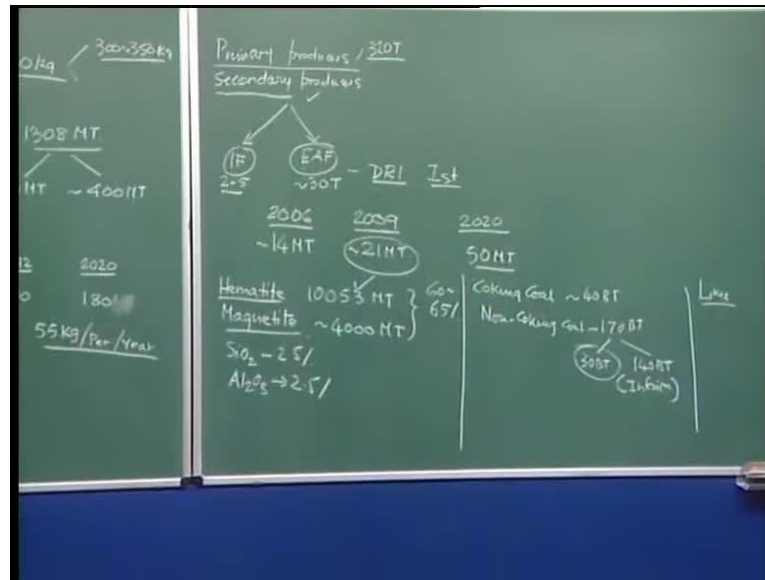 300~350kg
0kg
1308 MT
MT ~400MT
2020
0 180
55kg/Per/Year
Primary producers, 320T
Secondary producers
IF EAF - DRI Ist
2-5 ~30T
2006 2009 2020
~14MT ~21MT 50MT
Hematite 10053 MT
Magnetite ~4000 MT
60~
65%
SiO2 - 2.5%
Al2O3 → 2.5%
Coking Coal ~40BT
Non-Coking Coal ~170BT
30BT 140BT